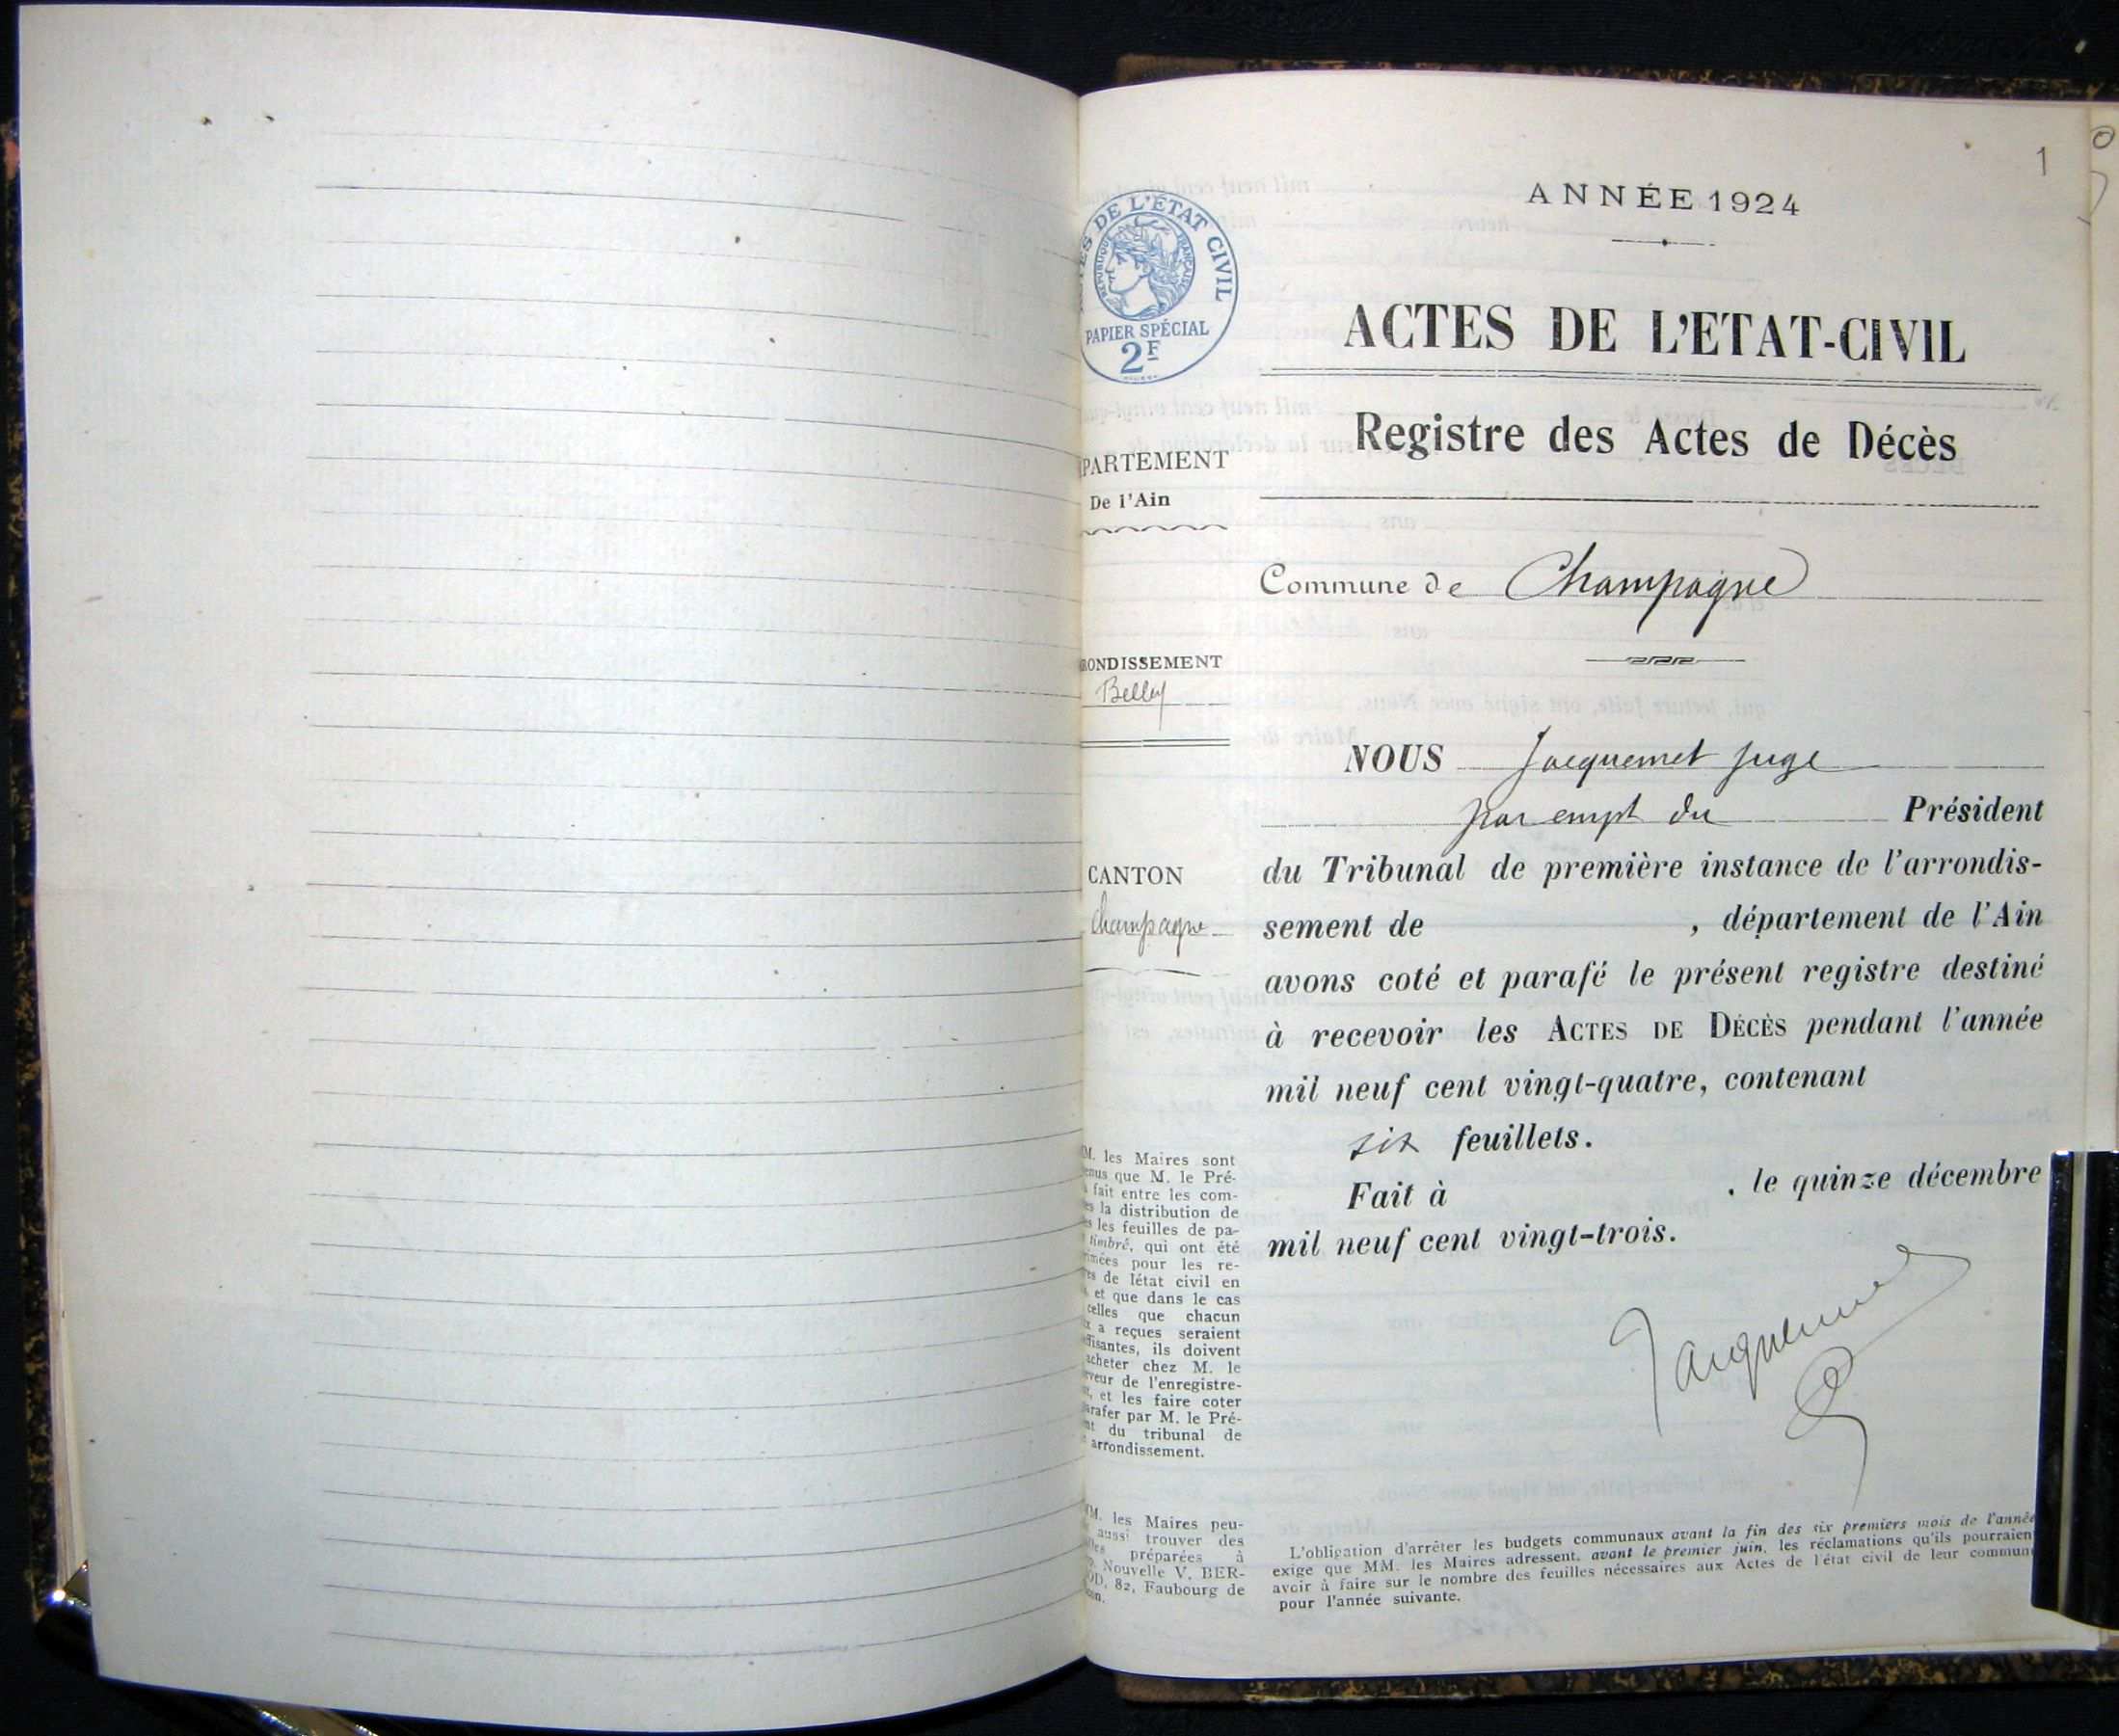 1
ANNÉE 1924
DE L'ÉTAT CIVIL
RÉPUBLIQUE FRANÇAISE
PAPIER SPÉCIAL
2F
ACTES DE L'ETAT-CIVIL
Registre des Actes de Décès
PARTEMENT
De l'Ain
Commune de Champagne
RONDISSEMENT
Belley
NOUS Jacquemet juge
par empt du Président
du Tribunal de première instance de l'arrondis-
sement de , département de l'Ain
avons coté et parafé le présent registre destiné
à recevoir les ACTES DE DÉCÈS pendant l'année
mil neuf cent vingt-quatre, contenant
six feuillets.
Fait à , le quinze décembre
mil neuf cent vingt-trois.
Jacquemet
CANTON
Champagne
M. les Maires sont
enus que M. le Pré-
fait entre les com-
es la distribution de
es les feuilles de pa-
timbré, qui ont été
rimées pour les re-
es de létat civil en
et que dans le cas
celles que chacun
x a reçues seraient
ffisantes, ils doivent
acheter chez M. le
eveur de l'enregistre-
et les faire coter
arafer par M. le Pré-
nt du tribunal de
arrondissement.
M. les Maires peu-
aussi trouver des
préparées à
Nouvelle V. BER-
OD, 82, Faubourg de
L'obligation d'arrêter les budgets communaux avant la fin des six premiers mois de l'année
exige que MM. les Maires adressent, avant le premier juin, les réclamations qu'ils pourraien
avoir à faire sur le nombre des feuilles nécessaires aux Actes de l'état civil de leur commun
pour l'année suivante.